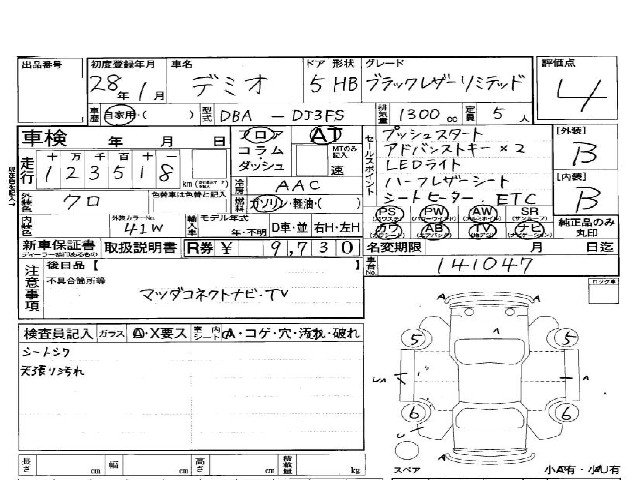 出品番号 初度登録年月 車名 ドア 形状 グレード 評価点
28年 1月 デミオ 5 HB ブラックレザーリミテッド 4
車歴 自家用・( ) 型式 DBA － DJ3FS 排気量 1300 cc 定員 5 人
車検 年 月 日 フロア AT セールスポイント プッシュスタート [外装]
コラム MTのみ記入 アドバンストキー×2 B
走行 十 万 千 百 十 一 ダッシュ 速 LEDライト
1 2 3 5 1 8 km 冷房 AAC ハーフレザーシート [内装]
外装色 クロ 色替車は色替と記入 燃料 ガソリン・軽油・( ) シートヒーター. ETC B
内装色 外装カラーNo. 41W 輸入車 モデル年式 年・不明 D車・並 右H・左H
PS PW AW SR
カワ AB TV ナビ 純正品のみ丸印
新車保証書 取扱説明書 R券 ¥ 9,730 名変期限 月 日迄
注意事項 後日品【 】 車台No. 141047
不具合箇所等 ロック車
マツダコネクトナビ・TV
検査員記入 ガラス A・X要ス 車内シート A・コゲ・穴・汚れ・破れ
シートシワ
天張り汚れ
5 5
A A
A
6 6
A
長さ cm 幅 cm 高さ cm 積載量 kg
スペア 小A有・小U有